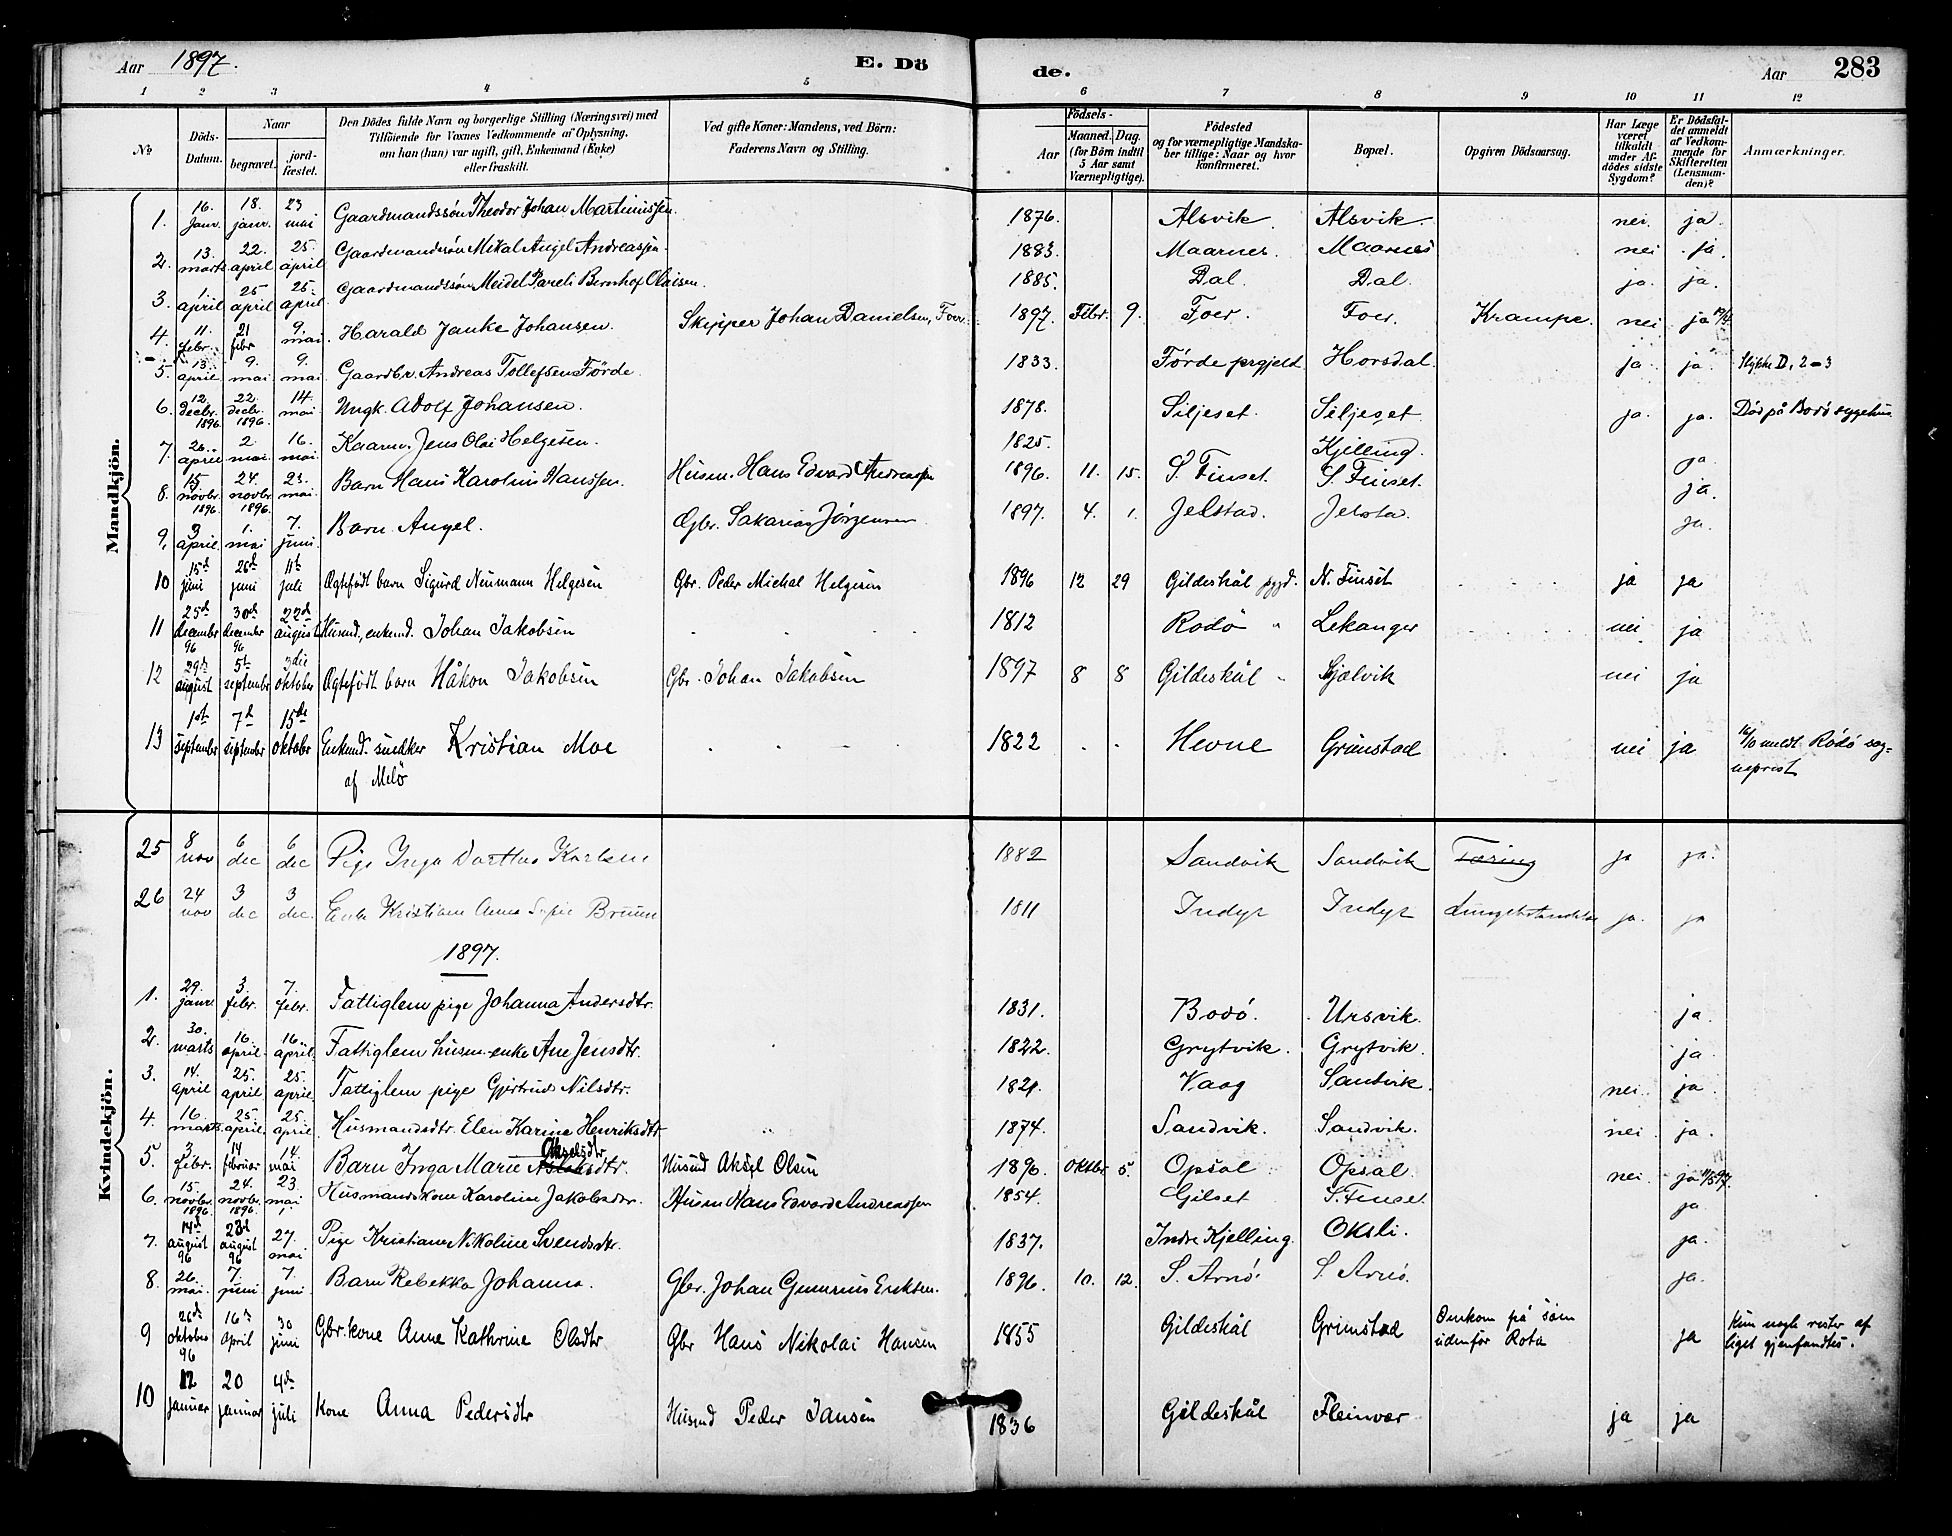 Aar 1897. E. Dö de. Aar 283
1 2 3 4 5 6 7 8 9 10 11 12
No. Döds-Datum. Naar begravet. jordfæstet. Den Dödes fulde Navn og borgerlige Stilling (Næringsvei) med Tilföiende for Voxnes Vedkommende af Oplysning, om han (hun) var ugift, gift, Enkemand (Enke) eller fraskilt. Ved gifte Koner: Mandens, ved Börn: Faderens Navn og Stilling. Födsels- Aar Maaned. Dag. (for Börn indtil 5 Aar samt Værnepligtige). Födested og for værnepligtige Mandskaber tillige: Naar og hvor konfirmeret. Bopæl. Opgiven Dödsaarsag. Har Læge været tilkaldt under Afdödes sidste Sygdom? Er Dödsfaldet anmeldt af Vedkommende for Skifteretten (Lensmanden)? Anmærkninger.
Mandkjön.
1. 16. janr. 18. janr. 23 mai Gaardmandssön Theodor Johan Martinussen. 1876. Alsvik. Alsvik. nei. ja.
2. 13. marts 22. april 25. april Gaardmandssön Mekal Angel Andreassen. 1883. Maarnes. Maarnes nei ja.
3. 1. april 25 april 25. april Gaardmandssön Meidel Pareli Bernhof Olaisen. 1885. Dal. Dal. ja. ja.
4. 11. febr. 21 febr 9. mai. Harald Janke Johansen. Skipper Johan Danielsen, Foer. 1897. Febr. 9. Foer. Foer. Krampe. nei ja
5. 13. april 9. mai 9. mai Gaardbr. Andreas Tollefsen Förde. 1833. Förde prgjeld Horsdal. ja ja. Stykke D, 2-3
6. 12. decbr. 1896. 22. decbr. 1896. 14. mai Ungk. Adolf Johansen. 1878. Siljeset. Siljeset. ja. ja. Död på Bodö sygehus
7. 26. april 2. mai. 16. mai. Kaarm. Jens Olai Helgesen. 1825. Kjelling. ja.
8. 15. novbr. 1896. 24. novbr. 1896. 23. mai. Barn Hans Karolius Hanssen. Husm. Hans Edvard Andreassen 1896. 11. 15. S. Finset. S. Finset. ja.
9. 3 april. 1. mai 7. juni. Barn Angel. Gbr. Sakarias Jörgensen 1897. 4. 1. Jelstad. Jelsta. ja.
10 15d juni 26d juni 11t juli Ægtefödt barn Sigurd Neumann Helgesen Gbr. Peder Michal Helgesen 1896 12 29 Gildeskål pgjd. N. Finset ja ja
11 25d december 96 30d december 96 22d august Husmd, enkemd. Johan Jakobsen 1812 Rödö " Lekanger nei ja
12 29d august 5t september 3die oktober Ægtefödt barn Håkon Jakobsen Gbr. Johan Jakobsen 1897 8 8 Gildeskål " Sjælvik nei ja
13 1st september 7d september 15de oktober Enkemd. snedker Kristian Moe af Melö 1822 Hevne Grimstad nei ja 16/10 meldt Rödö sogneprest
Kvindekjön.
25 8 nov 6 dec 6 dec Pige Inga Dorthea Karlsen 1882 Sandvik Sandvik Tæring ja ja.
26 24 nov 3 dec 3 dec. Enke Kristiane Anna Sofie Bruun 1811 Indyr Indyr ja. ja
1897.
1. 29. janr. 3. febr. 7. febr. Fattiglem pige Johanna Andersdtr. 1831. Bodö. Ursvik. ja.
2. 30. marts 16. april. 16. april. Fattiglem husm.-enke Ane Jensdtr. 1822. Grytvik. Grytvik. ja.
3. 14. april 25. april 25. april Fattiglem pige Gjertrud Nilsdtr. 1821. Vaag Sandvik. nei. ja.
4. 16. marts 25. april. 25. april. Husmandsdtr. Elen Karine Henriksdtr. 1874. Sandvik. Sandvik. nei. ja.
5. 3. febr. 14 februar 14. mai Barn Inga Marie Akselsdtr. Husmd Aksel Olsen 1896. Oktbr. 5. Opsal Opsal. nei. ja 11/5 97.
6. 15. novbr. 1896 24. novbr. 1896. 23. mai Husmandskone Karoline Jakobsdtr. Husm Hans Edvard Andreassen 1854. Gilset S. Finse. ja.
7. 14d august 96 23d august 96 27. mai Pige Kristiane Nikoline Svendsdtr. 1837. Indre Kjelling. Oksli. ja.
8. 26. mai. 7. juni 7. juni. Barn Rebekka Johanna. Gbr. Johan Gunnrius Eriksen. 1896. 10. 12. S. Arnö. S. Arnö. ja.
9 26d oktober 96 16d april 30 juni Gbr. kone Anne Kathrine Olsdtr Gbr Hans Nikolai Hansen 1855 Gildeskål Grimstad Omkom på söen udenfor Rota ja Kun nogle rester af liget gjenfandtes.
10 12 januar 20 januar 4d juli Kone Anna Pedersdtr Husmd Peder Jansen 1836 Gildeskål Fleinvær ja ja